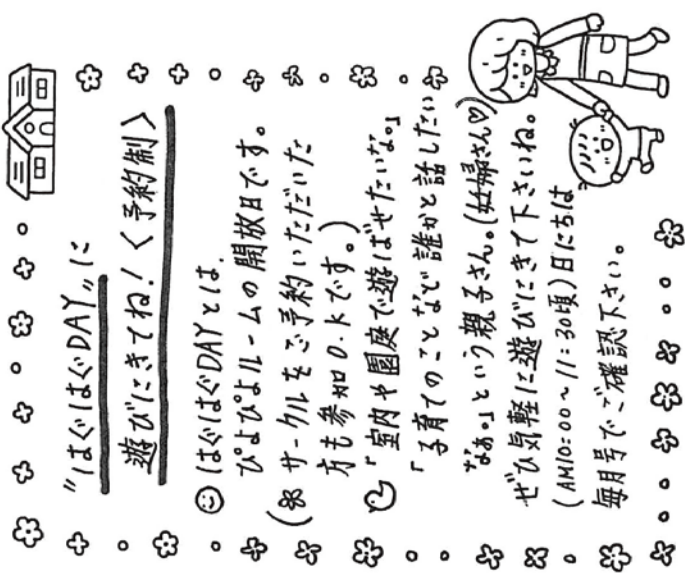 "はぐはぐDAY"に
遊びにきてね!<予約制>
はぐはぐDAYとは、
ぴよぴよルームの開放日です。
(※サークルをご予約いただいた
方も参加O.Kです。)
「室内や園庭で遊ばせたいな。」
「子育てのことなど誰かと話したい
なぁ。」という親子さん。(妊婦さん♡)
ぜひ気軽に遊びにきて下さいね。
(AM10:00～11:30頃)日にちは
毎月号でご確認下さい。